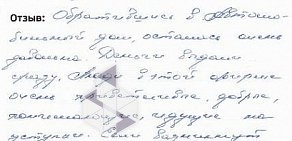 Отзыв: Обратившись в Автомо-
бильный дом, осталась очень
довольна Деньги выдали
сразу, Люди в этой фирме
очень приветливые, добрые,
понимающие, идущие на
уступки. Если возникнут